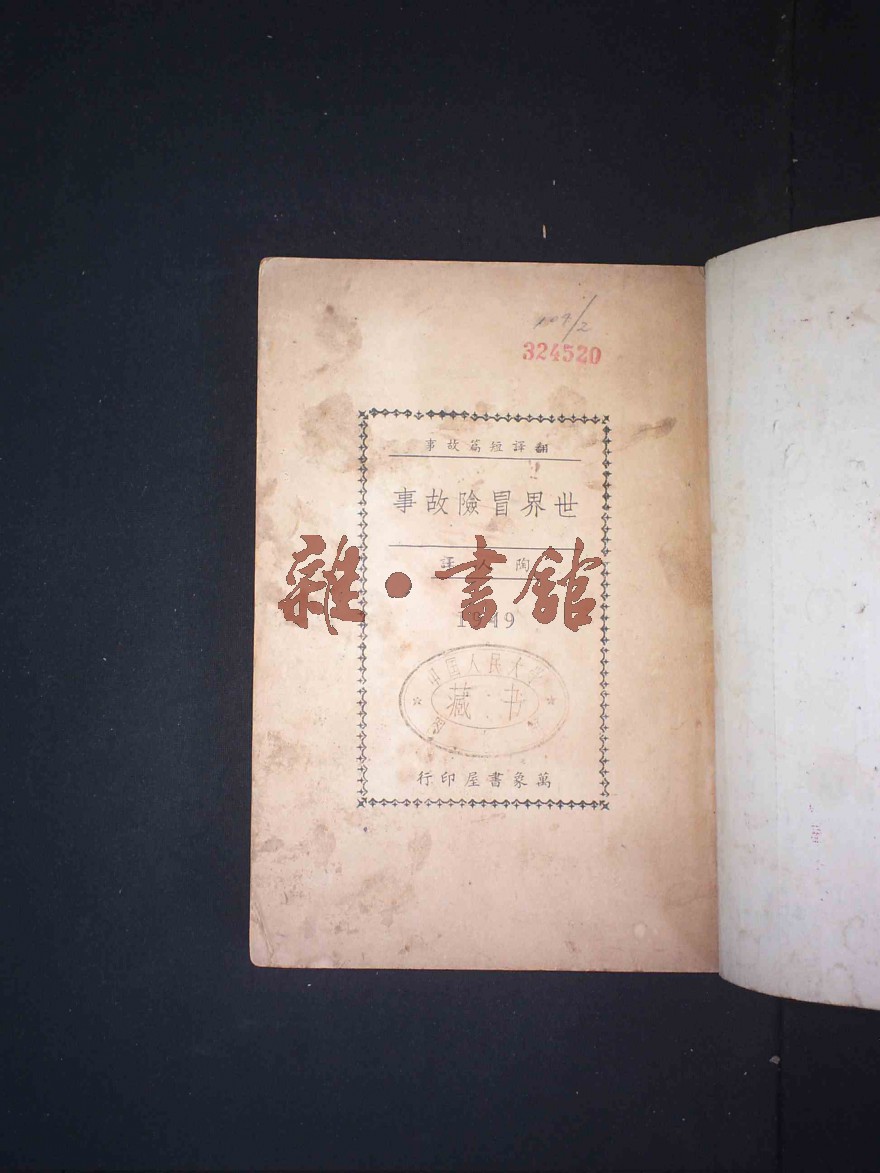 324520
翻譯短篇故事
世界冒險故事
陶人譯
雜·書館
1949
中国人民大学
藏书
萬象書屋印行